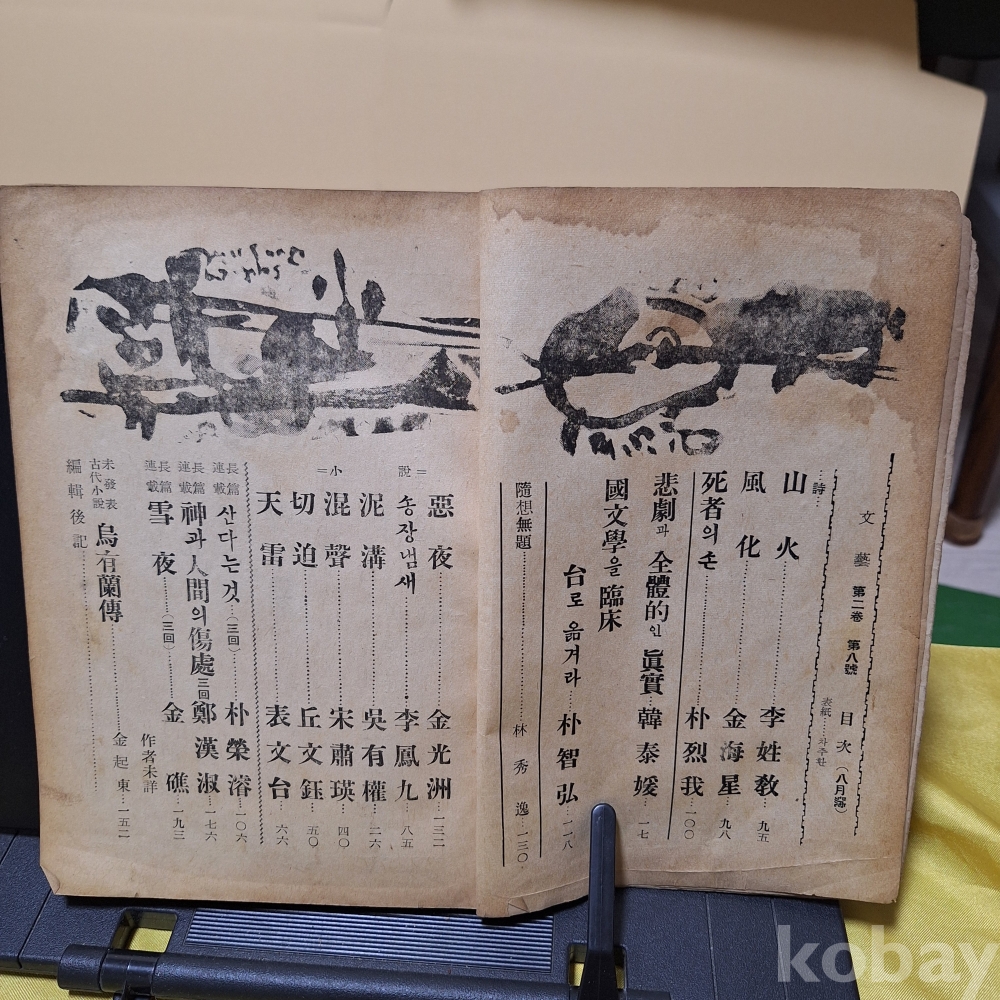 文藝 第二卷 第八號 目次 (八月號)
表紙…차주환
…詩…
山火…李姓敎…九五
風化…金海星…九八
死者의 손…朴烈我…一〇〇
悲劇과 全體的인 眞實…韓泰媛…一七
國文學을 臨床
台로 옮겨라…朴智弘…一一八
隨想 無題…林秀逸…一三〇
=小說=
惡夜…金光洲…一三二
송장냄새…李鳳九…八五
泥溝…吳有權…二六
混聲…宋肅瑛…四〇
切迫…丘文鈺…五〇
天雷…表文台…六六
長篇連載 산다는것 (三回)…朴榮溶…一〇六
長篇連載 神과 人間의 傷處 三回 鄭漢淑…一七六
長篇連載 雪夜 (三回)…金礁…九三
作者未詳
未發表古代小說 烏有蘭傳…金起東…一五二
編輯後記
kobay